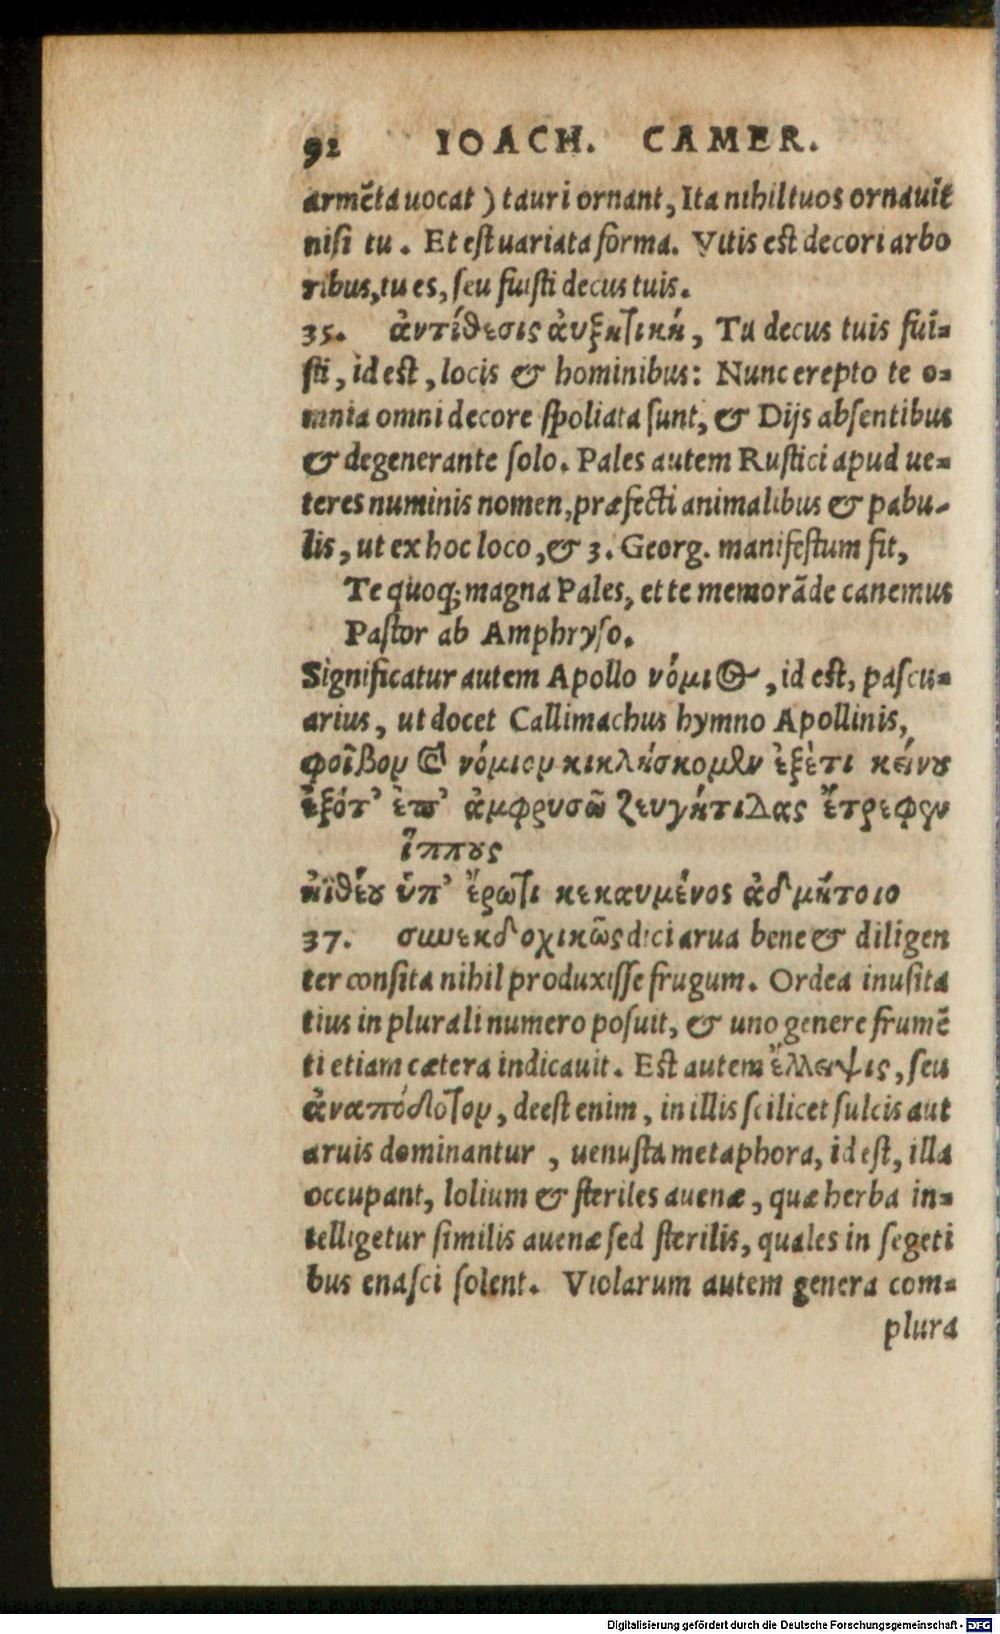 92 IOACH. CAMER.
armẽta uocat ) tauri ornant, Ita nihil tuos ornauit
nisi tu. Et est uariata forma. Vitis est decori arbo
ribus, tu es, seu fuisti decus tuis.
35. ἀντίθεσις ἀυξητικὴ, Tu decus tuis fui=
sti, id est, locis & hominibus: Nunc erepto te o=
mnia omni decore spoliata sunt, & Dijs absentibus
& degenerante solo. Pales autem Rustici apud ue=
teres numinis nomen, præfecti animalibus & pabu-
lis, ut ex hoc loco, & 3. Georg. manifestum fit,
Te quoq; magna Pales, et te memorãde canemus
Pastor ab Amphryso.
Significatur autem Apollo νόμιος, id est, pascu=
arius, ut docet Callimachus hymno Apollinis,
φοῖβον καὶ νόμιον κικλήσκομεν ἐξέτι κείνου
ἐξότ' ἐπ' ἀμφρυσῶ ζευγήτιδας ἔτρεφεν
ἵππους
ἠϊθέου ὑπ' ἔρωτι κεκαυμένος ἀδμήτοιο
37. συνεκδοχικῶς dici arua bene & diligen
ter consita nihil produxisse frugum. Ordea inusita
tius in plurali numero posuit, & uno genere frumẽ
ti etiam cætera indicauit. Est autem ἔλλειψις, seu
ἀναπόδοτον, deest enim, in illis scilicet sulcis aut
aruis dominantur , uenusta metaphora, id est, illa
occupant, lolium & steriles auenæ, quæ herba in=
telligetur similis auenæ sed sterilis, quales in segeti
bus enasci solent. Violarum autem genera com=
plura
Digitalisierung gefördert durch die Deutsche Forschungsgemeinschaft - DFG